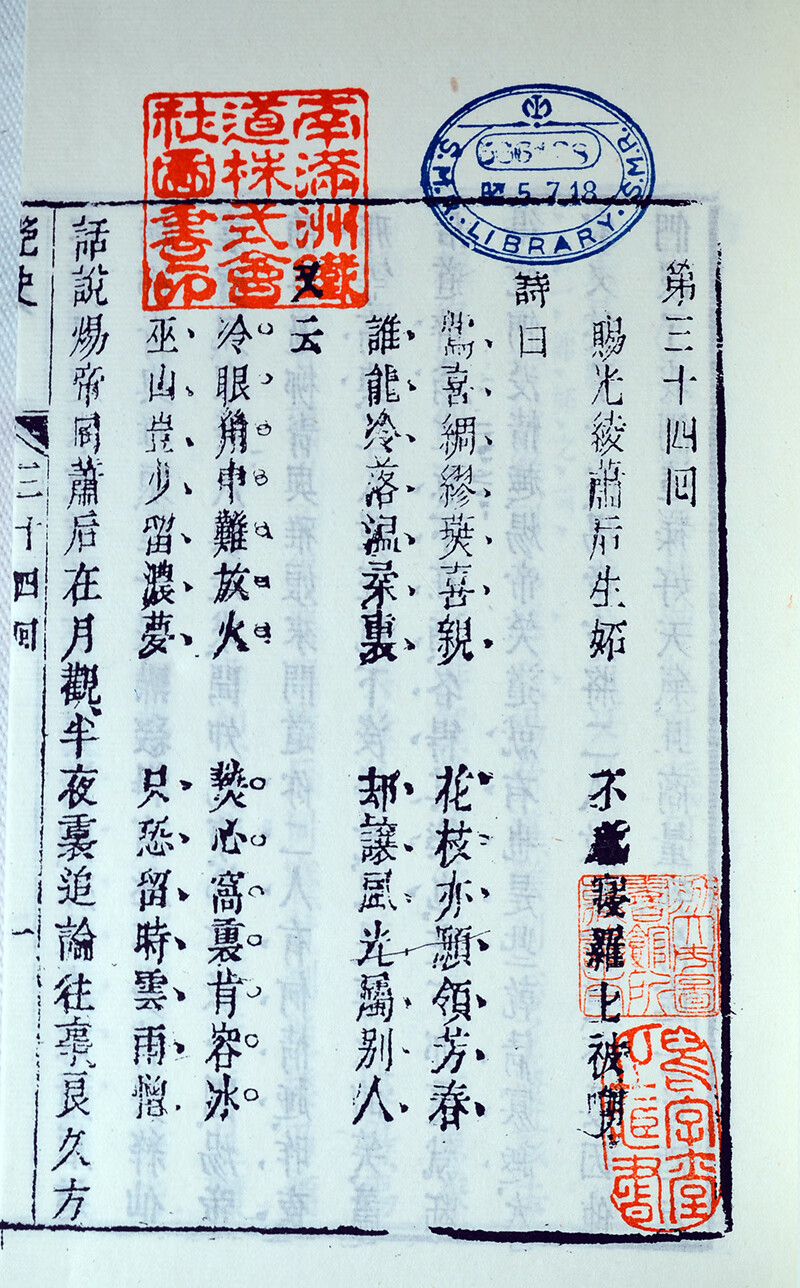 第三十四回
賜光綾蕭后生妬 不 寢羅 被
詩曰
鶯喜綢繆燕喜親 花枝亦願領芳春
誰能冷落温柔裏 却讓風光屬别人
又云
冷眼角中難放火 熱心窩裏肯容冰
巫山豈少留濃夢 只恐留時雲雨憎
話說煬帝同蕭后在月觀半夜裏追論往事良久方
艷史
三十四回
一
南滿洲鐵道株式會社圖書印
S.M.R. LIBRARY S.M.R.
5.7.18